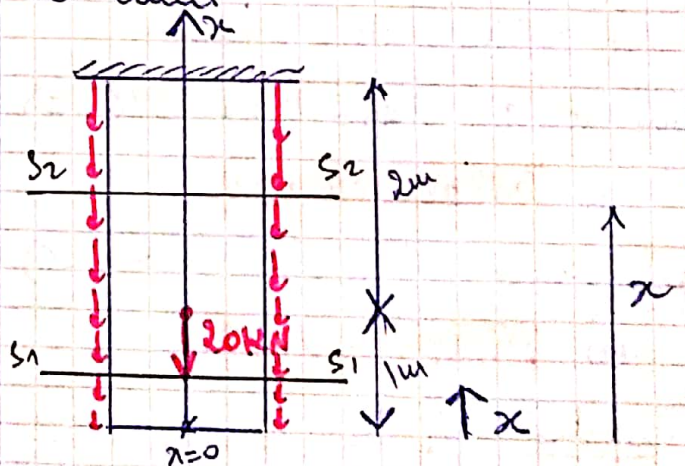 x
S2 S2
2m
x
20KN
S1 S1
1m
x
x=0